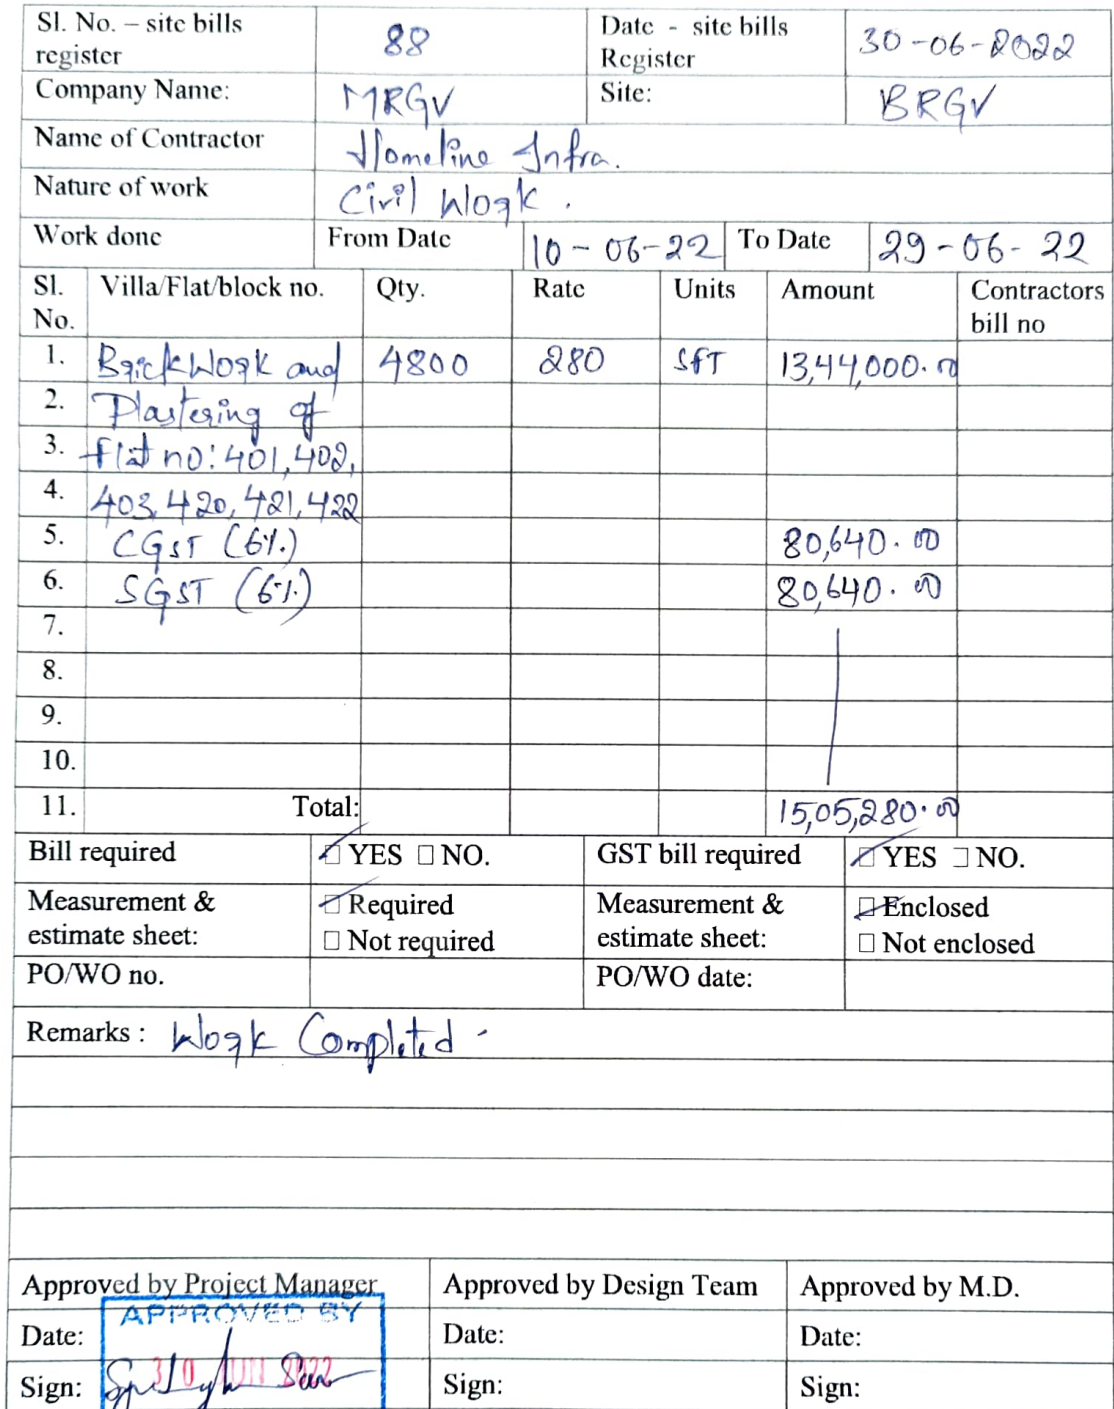 Sl. No. – site bills register 88 Date - site bills Register 30-06-2022
Company Name: MRGV Site: BRGV
Name of Contractor Homeline Infra.
Nature of work Civil Work.
Work done From Date 10-06-22 To Date 29-06-22
Sl. No. Villa/Flat/block no. Qty. Rate Units Amount Contractors bill no
1. Brickwork and 4800 280 SFT 13,44,000.00
2. Plastering of
3. flat no: 401, 402,
4. 403, 420, 421, 422
5. CGST (6%) 80,640.00
6. SGST (6%) 80,640.00
7.
8.
9.
10.
11. Total: 15,05,280.00
Bill required YES NO. GST bill required YES NO.
Measurement & estimate sheet: Required Not required Measurement & estimate sheet: Enclosed Not enclosed
PO/WO no. PO/WO date:
Remarks : Work Completed.
Approved by Project Manager Approved by Design Team Approved by M.D.
APPROVED BY
Date: Date: Date:
30 JUN 2022
Sign: Sign: Sign: